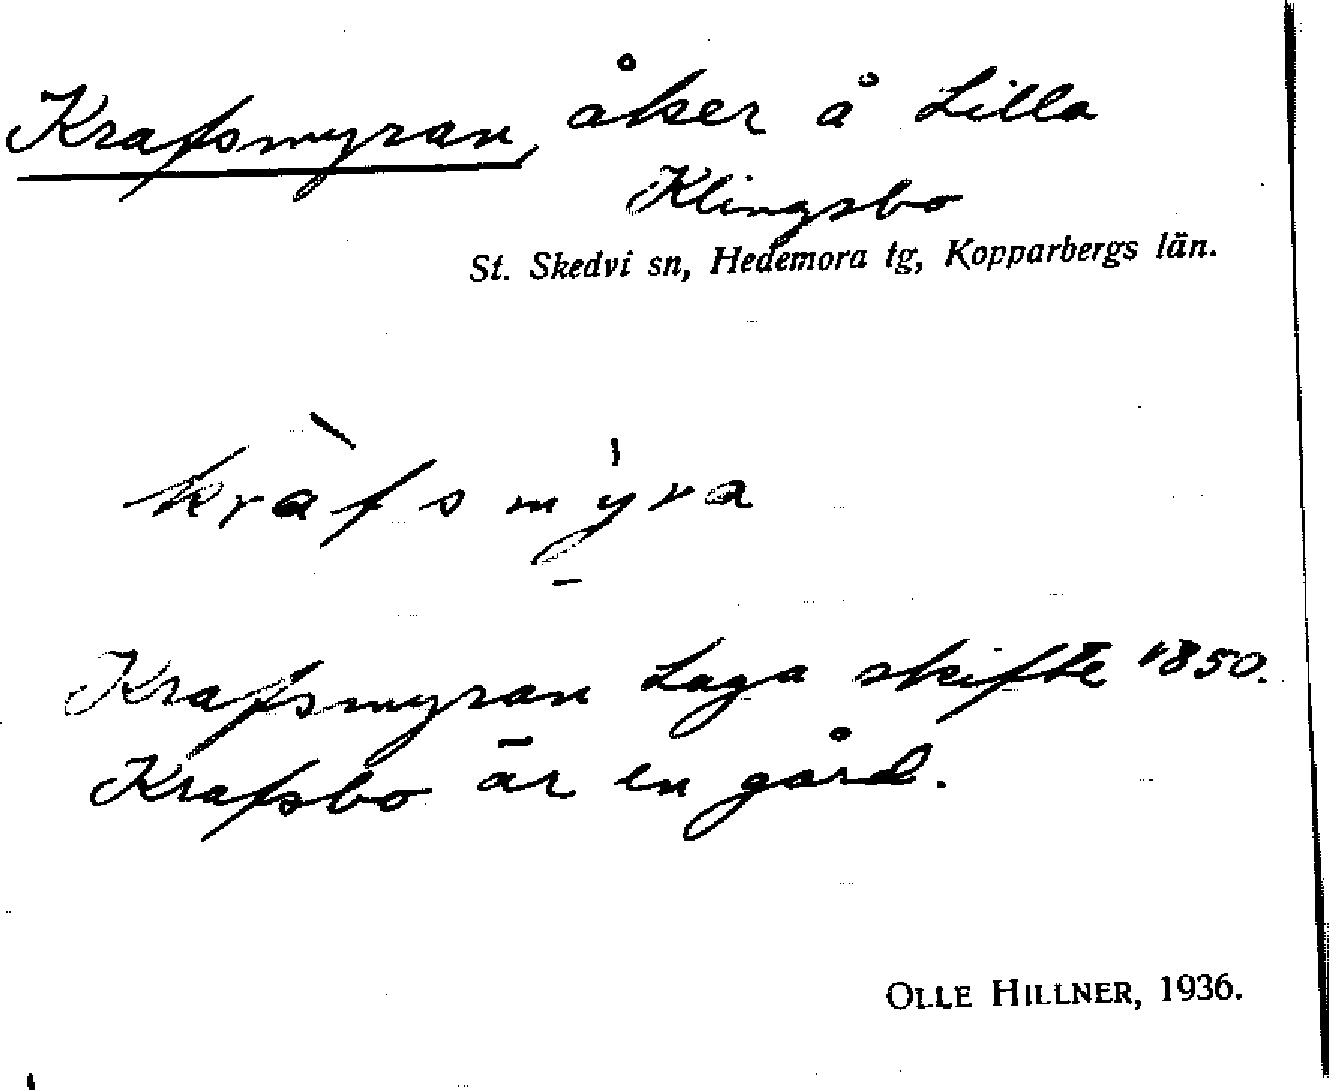 Krafsmyran, åker å Lilla
Klingsbo
St. Skedvi sn, Hedemora tg, Kopparbergs län.
kràfsmy̠ra
Krafsmyran Laga skifte 1850.
Krafsbo är en gård.
OLLE HILLNER, 1936.